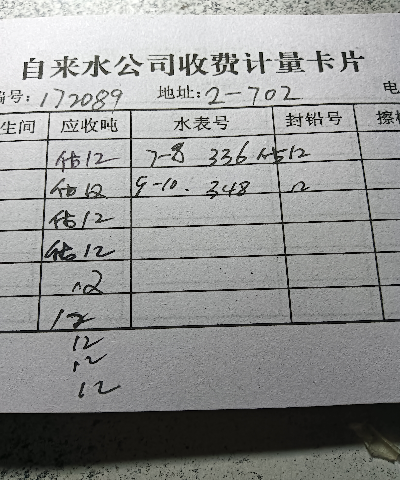 自来水公司收费计量卡片
编号: 172089 地址: 2-702 电
生间 应收吨 水表号 封铅号 擦
估12 7-8 336 估12
估12 9-10. 348 12
估12
估12
12
12
12
12
12